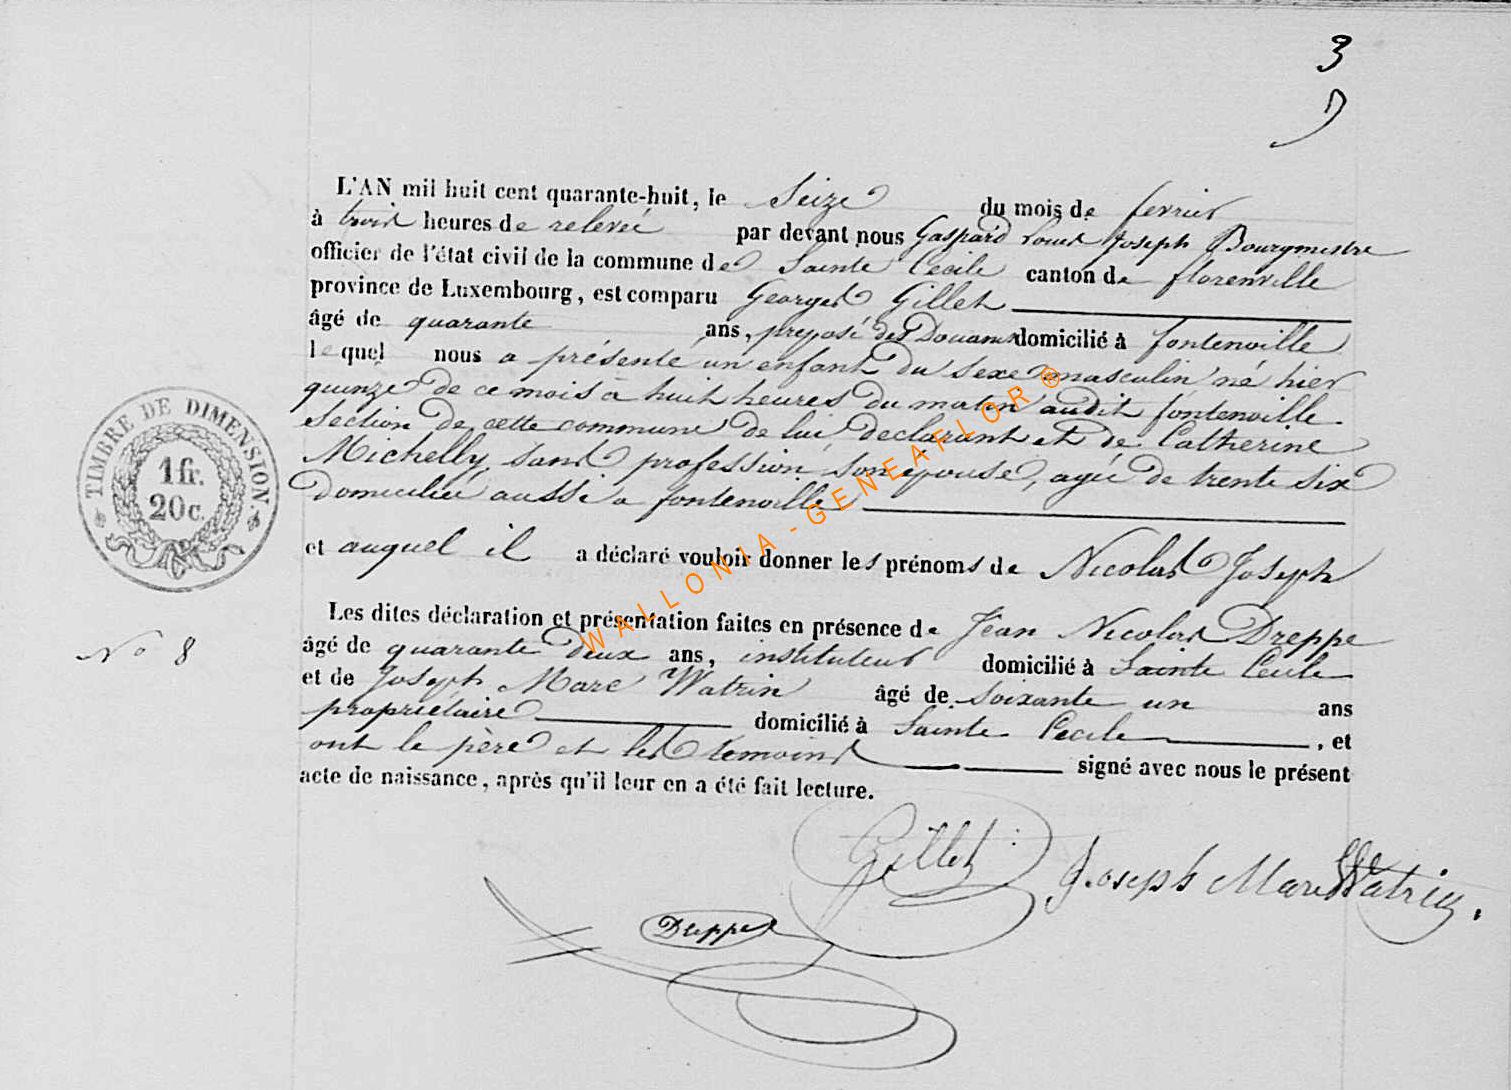 3
L'AN mil huit cent quarante-huit, le Seize du mois de fevrier
à trois heures de relevée par devant nous Gaspard Louis Joseph Bourgmestre
officier de l'état civil de la commune de Sainte Cecile canton de florenville
province de Luxembourg, est comparu Georges Gillet
âgé de quarante ans, preposé des Douanes domicilié à fontenoille
lequel nous a présenté un enfant du sexe masculin né hier
quinze de ce mois à huit heures du matin audit fontenoille
Section de cette commune de lui déclarant et de Catherine
Michelly, sans profession son epouse, agée de trente six
domiciliée aussi a fontenoille
et auquel il a déclaré vouloir donner les prénoms de Nicolas Joseph
Les dites déclaration et présentation faites en présence de Jean Nicolas Dreppe
âgé de quarante deux ans, instituteur domicilié à Sainte Cecile
et de Joseph Marc Watrin âgé de soixante un ans
propriétaire domicilié à Sainte Cecile , et
ont le père et les temoins signé avec nous le présent
acte de naissance, après qu'il leur en a été fait lecture.
TIMBRE DE DIMENSION
1 fr.
20 c.
No 8
Gillet
Joseph Marc Watrin.
Dreppe
WALLONIA - GENEAFLOR ®